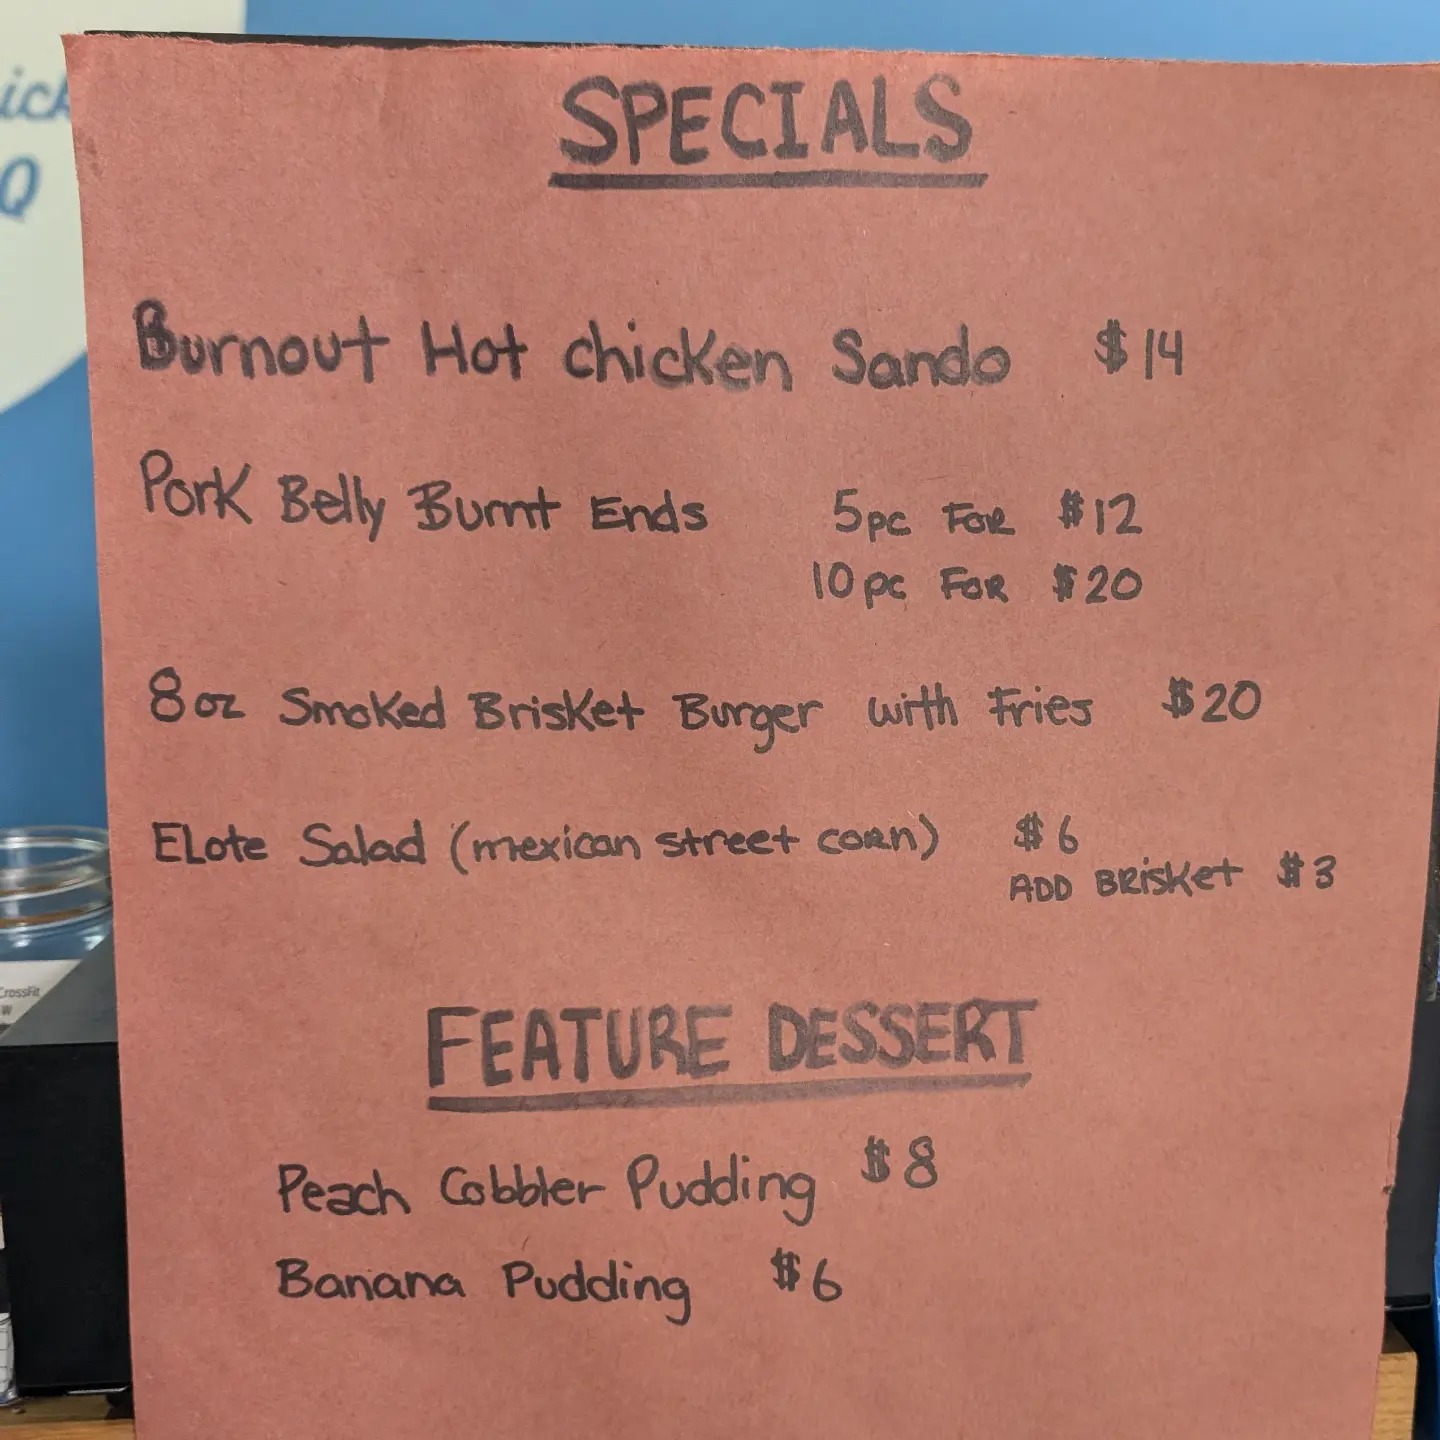 SPECIALS
Burnout Hot chicken Sando $14
Pork Belly Burnt Ends 5pc FOR $12
10pc FOR $20
8oz Smoked Brisket Burger with Fries $20
Elote Salad (mexican street corn) $6
ADD BRisket $3
FEATURE DESSERT
Peach Cobbler Pudding $8
Banana Pudding $6
ick
Q
CrossFit
W